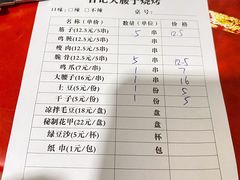 口味：□辣 □不辣 桌号：
名称(单价) 数量(单位) 价格
筋子(12.5元/5串) 5 串 12.5
鸡脆(12.5元/5串) 串
瘦肉(12.5元/5串) 串
脆骨(12.5元/5串) 5 串 12.5
鸡爪(7元/串) 1 串 7
大腰子(16元/串) 1 串 16
土豆(5元/份) 1 份 5
干子(5元/份) 1 份 5
凉拌毛豆(18元/盘) 盘
秘制花甲(22元/盘) 盘
绿豆沙(5元/杯) 杯
纸巾(1元/包) 包